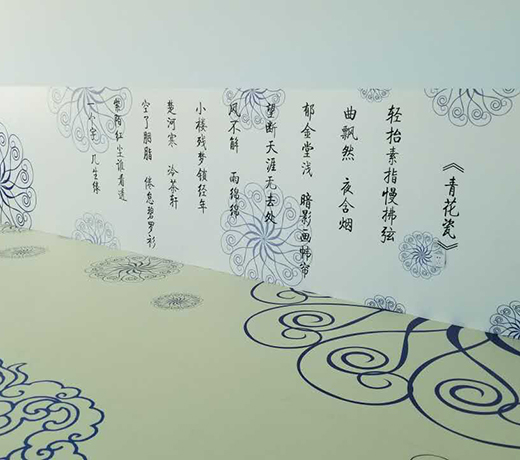 《青花瓷》
轻抬素指慢拂弦
曲飘然 夜含烟
郁金堂浅 暗影画帏帘
望断天涯无去处
风不解 雨绵绵
小楼残梦锁经年
楚河寒 冷茶轩
空了胭脂 倦怠碧罗衫
紫陌红尘谁看透
一个字 几生缘